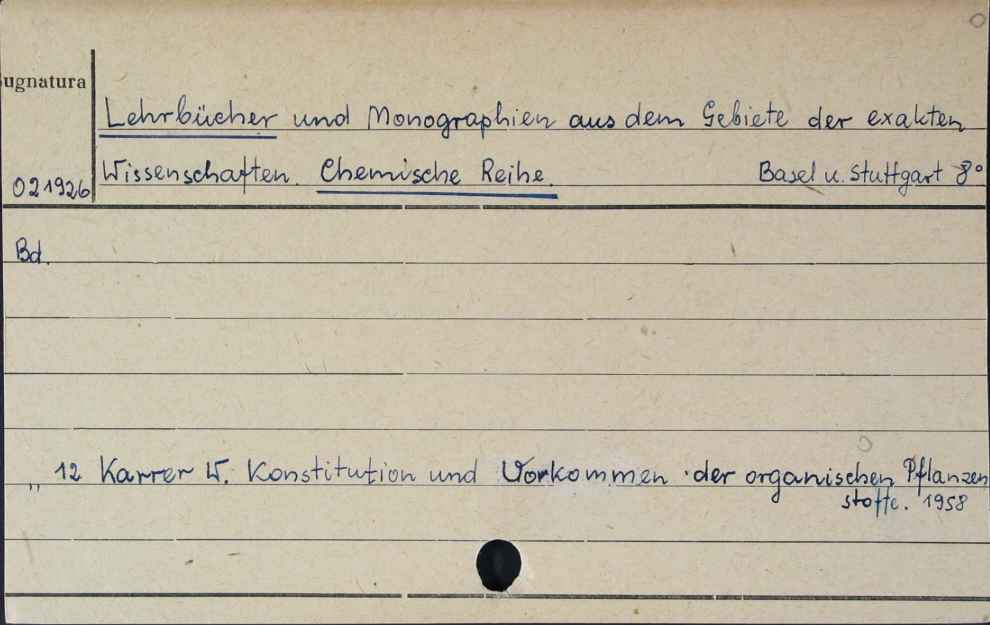 ugnatura
Lehrbücher und Monographien aus dem Gebiete der exakten
021926 Wissenschaften. Chemische Reihe. Basel u. Stuttgart 8°
Bd.
„ 12 Karrer W. Konstitution und Vorkommen der organischen Pflanzen
stoffe. 1958